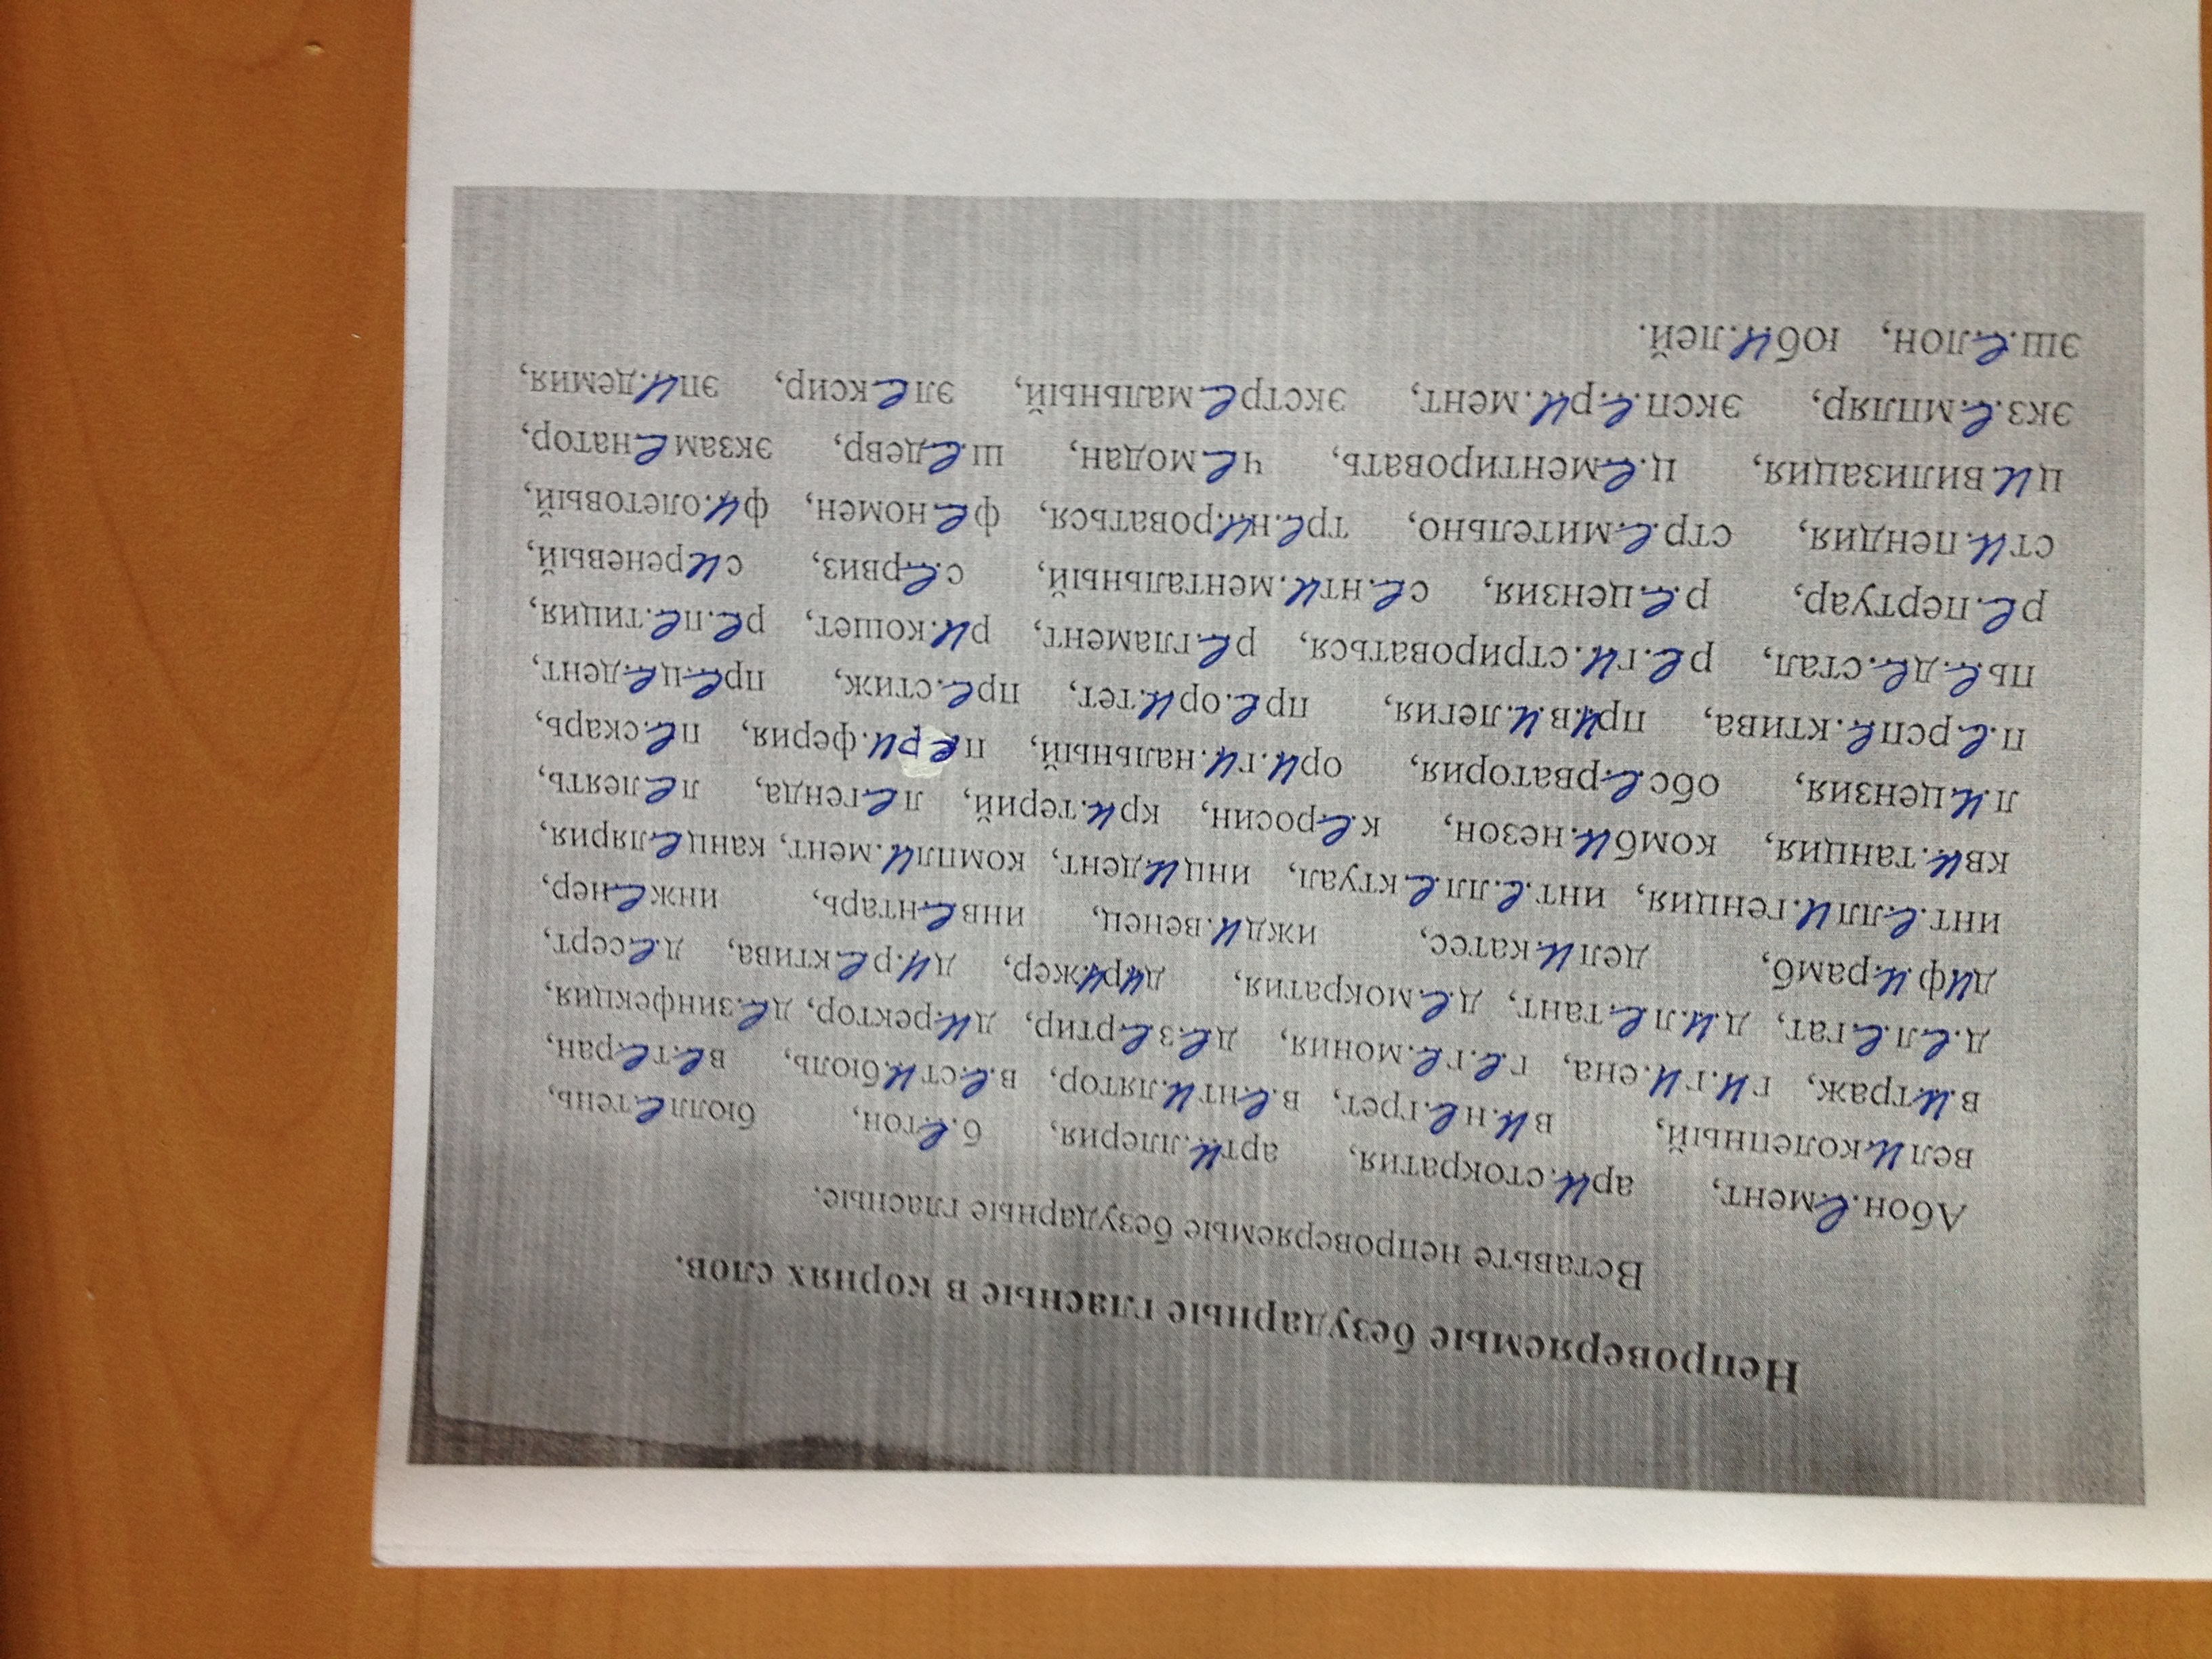 Непроверяемые безударные гласные в корнях слов.
Вставьте непроверяемые безударные гласные.
Абон.е.мент, ари.стократия, арти.ллерия, б.е.тон, бюлле.тень,
вели.колепный, ви.не.грет, в.е.нти.лятор, в.е.сти.бюль, ве.те.ран,
в.и.траж, ги.ги.ена, ге.ге.мония, де.зе.ртир, ди.ректор, де.зинфекция,
д.е.л.е.гат, д.и.л.е.тант, д.е.мократия, дирижер, ди.ре.ктива, д.е.серт,
диф.и.рамб, дели.катес, иждиʼ.венец, инвентарь, инженер,
инт.е.лли.генция, инт.е.лле.ктуал, инци.дент, компли.мент, канцелярия,
кви.танция, комби.незон, к.е.росин, кри.терий, ле.генда, лелеять,
л.и.цензия, обсе.рватория, ори.ги.нальный, пери.ферия, пе.скарь,
п.е.рспе.ктива, прив.и.легия, пре.ори.тет, пре.стиж, пре.це.дент,
пь.е.де.стал, ре.ги.стрироваться, ре.гламент, ри.кошет, ре.пе.тиция,
ре.пертуар, р.е.цензия, се.нти.ментальный, с.е.рвиз, сиреневый,
сти.пендия, стре.мительно, тре.ни.роваться, фе.номен, фи.олетовый,
ци.вилизация, ц.е.ментировать, чемодан, ш.е.девр, экзаменатор,
экз.е.мпляр, эксп.е.ри.мент, экстре.мальный, эле.ксир, эпи.демия,
эш.е.лон, юби.лей.